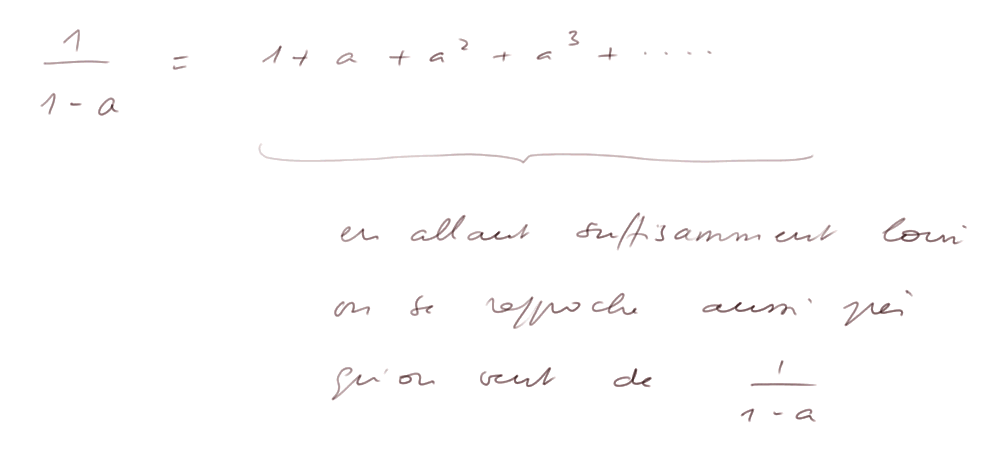 1/(1 - a) = 1 + a + a² + a³ + ....
en allant suffisamment loin
on se rapproche aussi près
qu'on veut de 1/(1 - a)